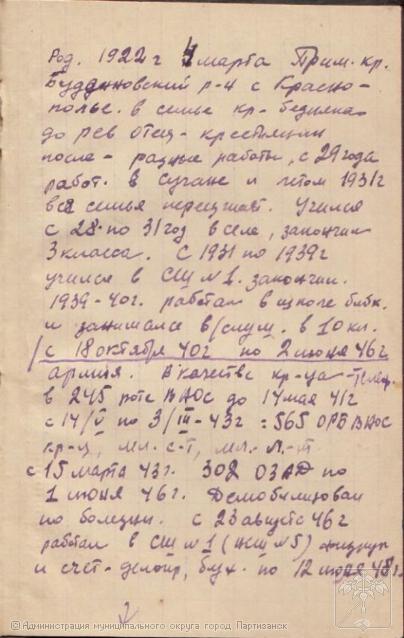 Род. 1922 г 4 марта Прим. кр.
Будденовский р-н с Красно-
полье. в семье кр- бедняка
до рев отец - крестьянин
после - разные работы, с 29 года
работ. в Сучане и летом 1931 г
вся семья переезжает. Учился
с 28 по 31 год в селе, закончил
3 класса. С 1931 по 1939 г
учился в СШ №1. закончил.
1939-40 г. работал в школе библ.
и занимался в/слуш. в 10 кл.
с 18 октября 40 г по 2 июня 46 г
армия. В качестве кр-ца-телеф.
в 245 роте ВНОС до 14 мая 41 г
с 14/V по 3/III-43 г = 565 ОРБ ВНОС
кр-ц, мл. с-т, мл. л-т
с 15 марта 43 г. 302 ОЗАД по
1 июня 46 г. Демобилизован
по болезни. с 23 августа 46 г
работал в СШ №1 (НСШ №5)
и счет-делопр, бух. по 12 июля 48 г.
© Администрация муниципального округа город Партизанск